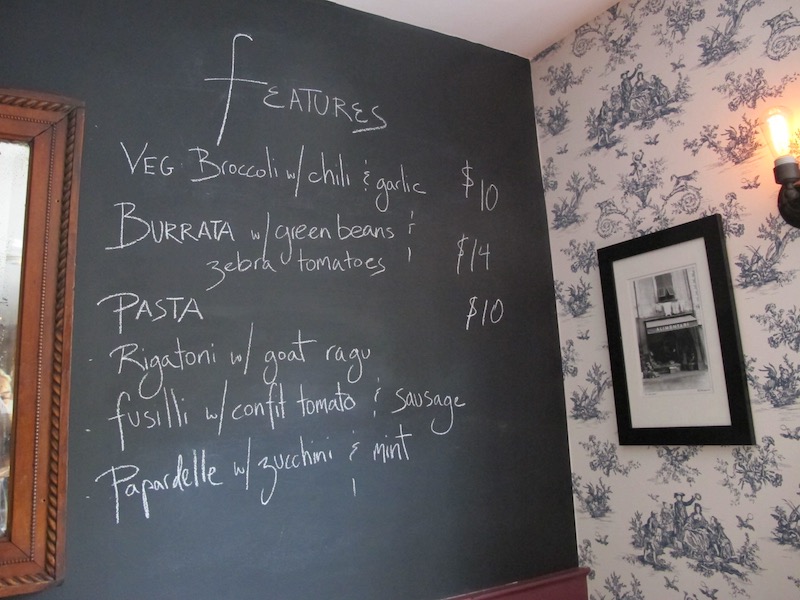 fEATURES
VEG Broccoli w/ chili & garlic $10
BURRATA w/ green beans &
zebra tomatoes $14
PASTA $10
Rigatoni w/ goat ragu
fusilli w/ confit tomato & sausage
Papardelle w/ zucchini & mint
ALIMENTARI